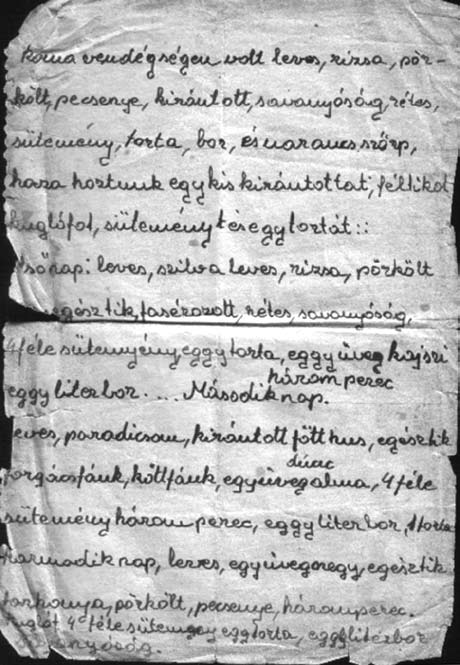 koma vendégségen volt leves, rizsa, pör-
költ, pecsenye, kirántott, savanyóság, rétes,
sütemény, torta, bor, és narancs szörp,
haza hortunk egy kis kirántottat, féltikot
kuglófot, sütemény t és egy tortát::
lsőnap: leves, szilva leves, rizsa, pörkölt
egész tik, fasérozott, rétes, savanyóság,
4 féle süteményény, eggy torta, eggy üveg kajszi
három perec
eggy liter bor.... Második nap.
leves, paradicsom, kirántott főtt hus, egész tik
dinc
forgácsfánk, köttfánk, egy üveg alma, 4 féle
sütemény három perec, eggy liter bor, 1 torta
Harmadik nap, leves, egy üveg megy, egész tik
tarhonya, pörkölt, pecsenye, három perec.
kuglót 4 féle sütemény eggy torta, eggy liter bor